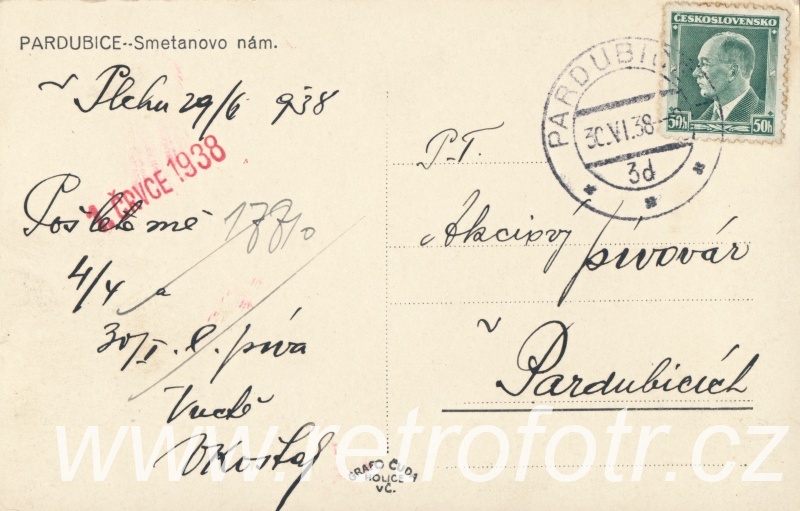 PARDUBICE--Smetanovo nám.
29/6 938
1. ČERVCE 1938
Pošlete mě
4/4 a
30/I. l. piva
ČESKOSLOVENSKO
50h 50h
PARDUBICE
30.VI.38
3d
P.T.
Akciový pivovár
v Pardubicích
GRAFO ČUDA
HOLICE
VČ.
www.retrofoto.cz